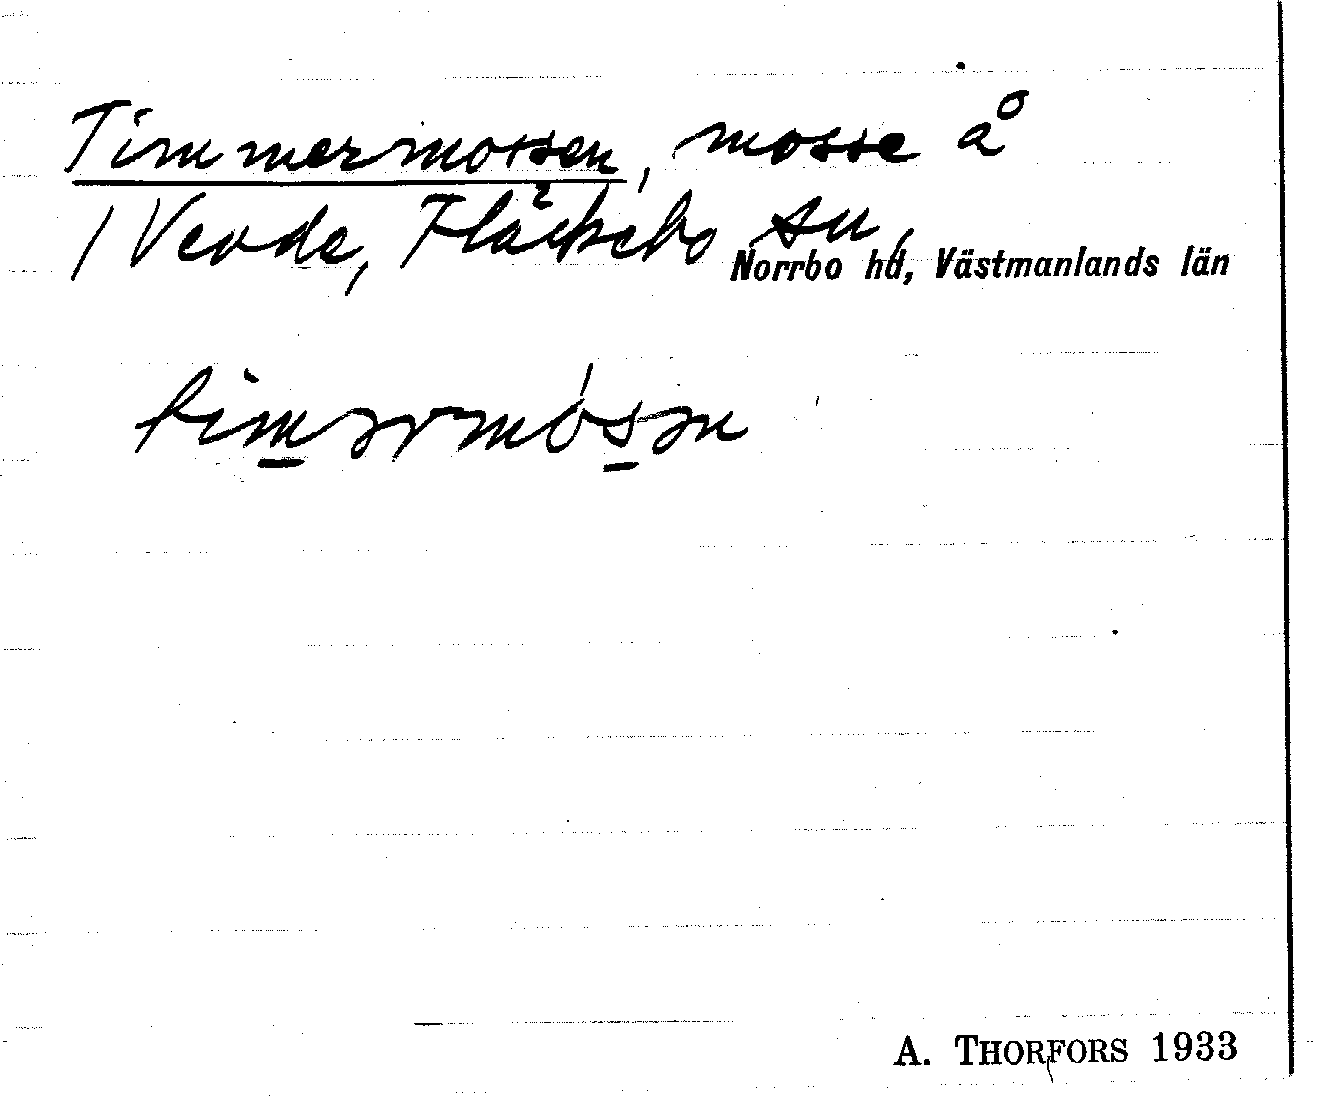 Timmermossen, mosse å
/Vevde, Fläckebo sn,
Norrbo hd, Västmanlands län
timərmósən
A. THORFORS 1933